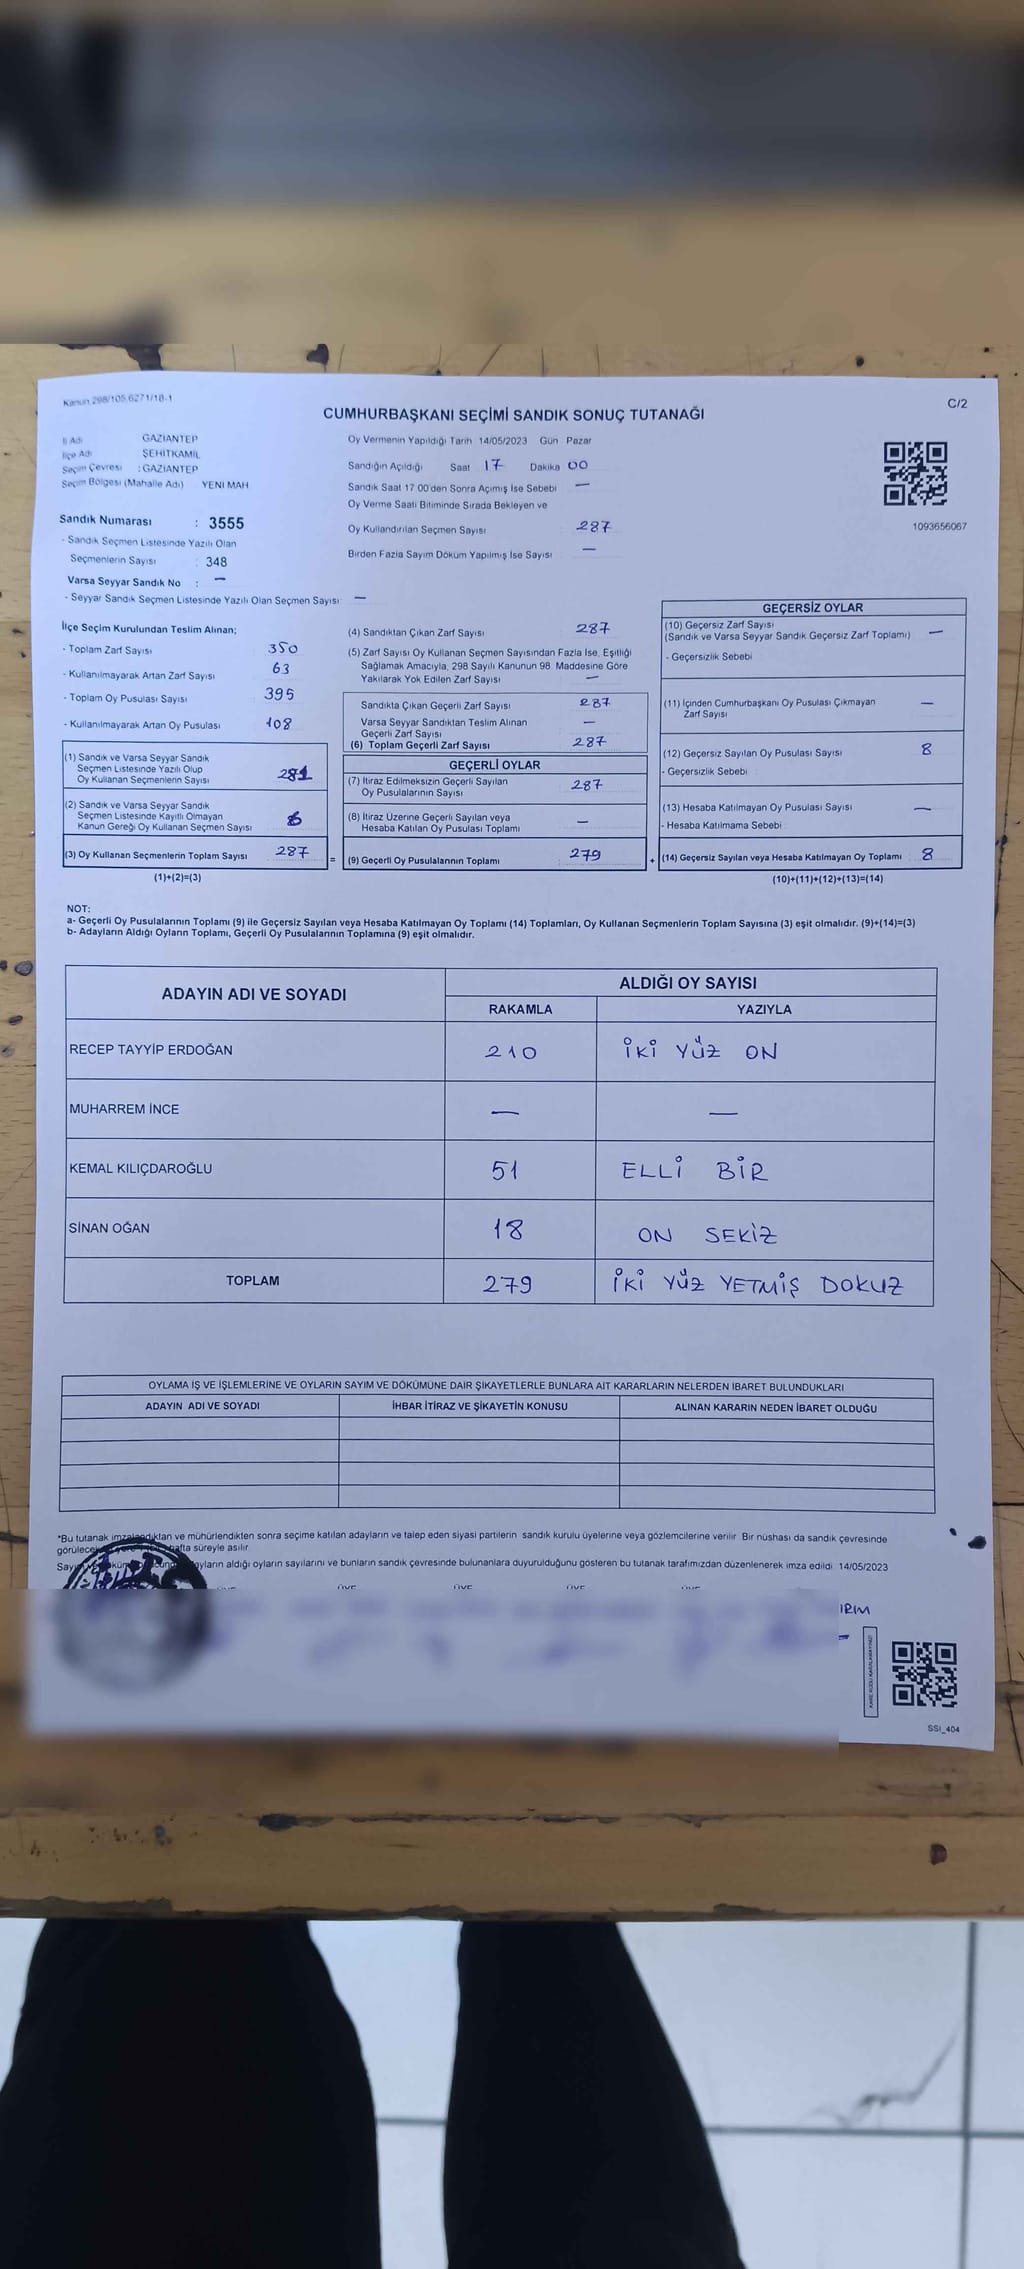 Kanun 298/105,6271/18-1
C/2
CUMHURBAŞKANI SEÇİMİ SANDIK SONUÇ TUTANAĞI
İl Adı GAZİANTEP
İlçe Adı ŞEHİTKAMİL
Seçim Çevresi : GAZİANTEP
Seçim Bölgesi (Mahalle Adı) YENİ MAH
Sandık Numarası : 3555
- Sandık Seçmen Listesinde Yazılı Olan
Seçmenlerin Sayısı : 348
Varsa Seyyar Sandık No : —
- Seyyar Sandık Seçmen Listesinde Yazılı Olan Seçmen Sayısı: —
Oy Vermenin Yapıldığı Tarih 14/05/2023 Gün Pazar
Sandığın Açıldığı Saat 17 Dakika 00
Sandık Saat 17 00'den Sonra Açımış İse Sebebi —
Oy Verme Saati Bitiminde Sırada Bekleyen ve
Oy Kullandırılan Seçmen Sayısı : 287
Birden Fazla Sayım Döküm Yapılmış İse Sayısı —
1093656067
İlçe Seçim Kurulundan Teslim Alınan;
- Toplam Zarf Sayısı 350
- Kullanılmayarak Artan Zarf Sayısı 63
- Toplam Oy Pusulası Sayısı 395
- Kullanılmayarak Artan Oy Pusulası 108
(1) Sandık ve Varsa Seyyar Sandık
Seçmen Listesinde Yazılı Olup
Oy Kullanan Seçmenlerin Sayısı 281
(2) Sandık ve Varsa Seyyar Sandık
Seçmen Listesinde Kayıtlı Olmayan
Kanun Gereği Oy Kullanan Seçmen Sayısı 6
(3) Oy Kullanan Seçmenlerin Toplam Sayısı 287
(1)+(2)=(3)
(4) Sandıktan Çıkan Zarf Sayısı 287
(5) Zarf Sayısı Oy Kullanan Seçmen Sayısından Fazla İse, Eşitliği
Sağlamak Amacıyla, 298 Sayılı Kanunun 98. Maddesine Göre
Yakılarak Yok Edilen Zarf Sayısı —
Sandıkta Çıkan Geçerli Zarf Sayısı 287
Varsa Seyyar Sandıktan Teslim Alınan
Geçerli Zarf Sayısı —
(6) Toplam Geçerli Zarf Sayısı 287
GEÇERLİ OYLAR
(7) İtiraz Edilmeksizin Geçerli Sayılan
Oy Pusulalarının Sayısı 287
(8) İtiraz Üzerine Geçerli Sayılan veya
Hesaba Katılan Oy Pusulası Toplamı —
= (9) Geçerli Oy Pusulalarının Toplamı 279
GEÇERSİZ OYLAR
(10) Geçersiz Zarf Sayısı
(Sandık ve Varsa Seyyar Sandık Geçersiz Zarf Toplamı) —
- Geçersizlik Sebebi
(11) İçinden Cumhurbaşkanı Oy Pusulası Çıkmayan
Zarf Sayısı —
(12) Geçersiz Sayılan Oy Pusulası Sayısı 8
- Geçersizlik Sebebi
(13) Hesaba Katılmayan Oy Pusulası Sayısı —
- Hesaba Katılmama Sebebi
+ (14) Geçersiz Sayılan veya Hesaba Katılmayan Oy Toplamı 8
(10)+(11)+(12)+(13)=(14)
NOT:
a- Geçerli Oy Pusulalarının Toplamı (9) ile Geçersiz Sayılan veya Hesaba Katılmayan Oy Toplamı (14) Toplamları, Oy Kullanan Seçmenlerin Toplam Sayısına (3) eşit olmalıdır. (9)+(14)=(3)
b- Adayların Aldığı Oyların Toplamı, Geçerli Oy Pusulalarının Toplamına (9) eşit olmalıdır.
ADAYIN ADI VE SOYADI ALDIĞI OY SAYISI
RAKAMLA YAZIYLA
RECEP TAYYİP ERDOĞAN 210 İKİ YÜZ ON
MUHARREM İNCE — —
KEMAL KILIÇDAROĞLU 51 ELLİ BİR
SİNAN OĞAN 18 ON SEKİZ
TOPLAM 279 İKİ YÜZ YETMİŞ DOKUZ
OYLAMA İŞ VE İŞLEMLERİNE VE OYLARIN SAYIM VE DÖKÜMÜNE DAİR ŞİKAYETLERLE BUNLARA AİT KARARLARIN NELERDEN İBARET BULUNDUKLARI
ADAYIN ADI VE SOYADI İHBAR İTİRAZ VE ŞİKAYETİN KONUSU ALINAN KARARIN NEDEN İBARET OLDUĞU
*Bu tutanak imzalandıktan ve mühürlendikten sonra seçime katılan adayların ve talep eden siyasi partilerin sandık kurulu üyelerine veya gözlemcilerine verilir Bir nüshası da sandık çevresinde
hafta süreyle asılır
adayların aldığı oyların sayılarını ve bunların sandık çevresinde bulunanlara duyurulduğunu gösteren bu tutanak tarafımızdan düzenlenerek imza edildi 14/05/2023
ÜYE ÜYE ÜYE ÜYE
SSI_404